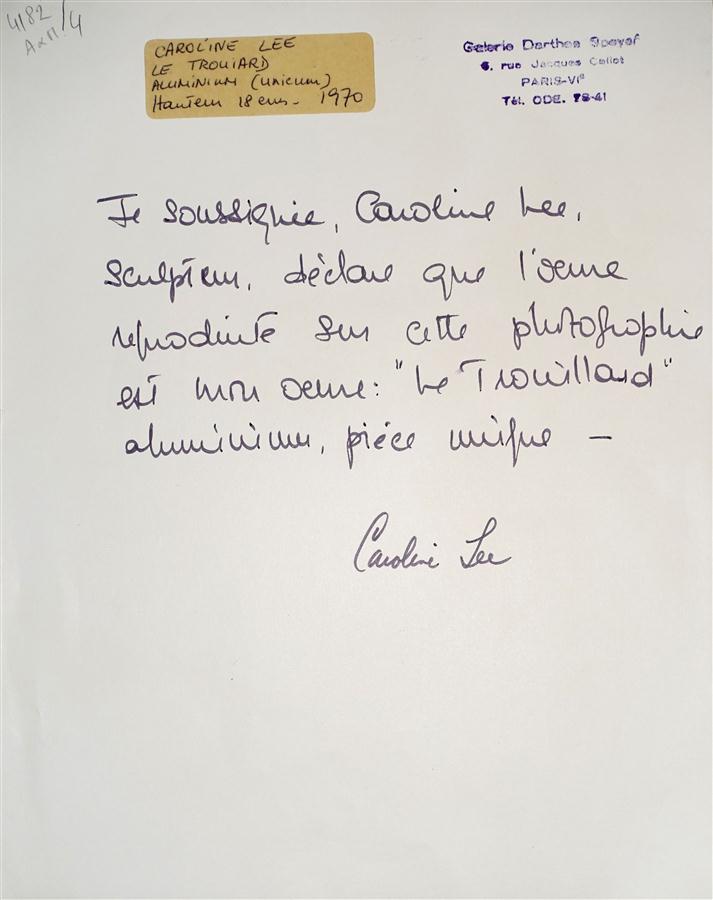 4182/4
CAROLINE LEE
LE TROUIARD
ALUMINIUM (unicum)
Hauteur 18 cms - 1970
Galerie Darthea Speyer
6, rue Jacques Callot
PARIS-VIe
Tél. ODE. 78-41
Je soussignée, Caroline Lee,
sculpteur, déclare que l'oeuvre
reproduite sur cette photographie
est mon oeuvre: "Le Trouillard"
aluminium, pièce unique —
Caroline Lee